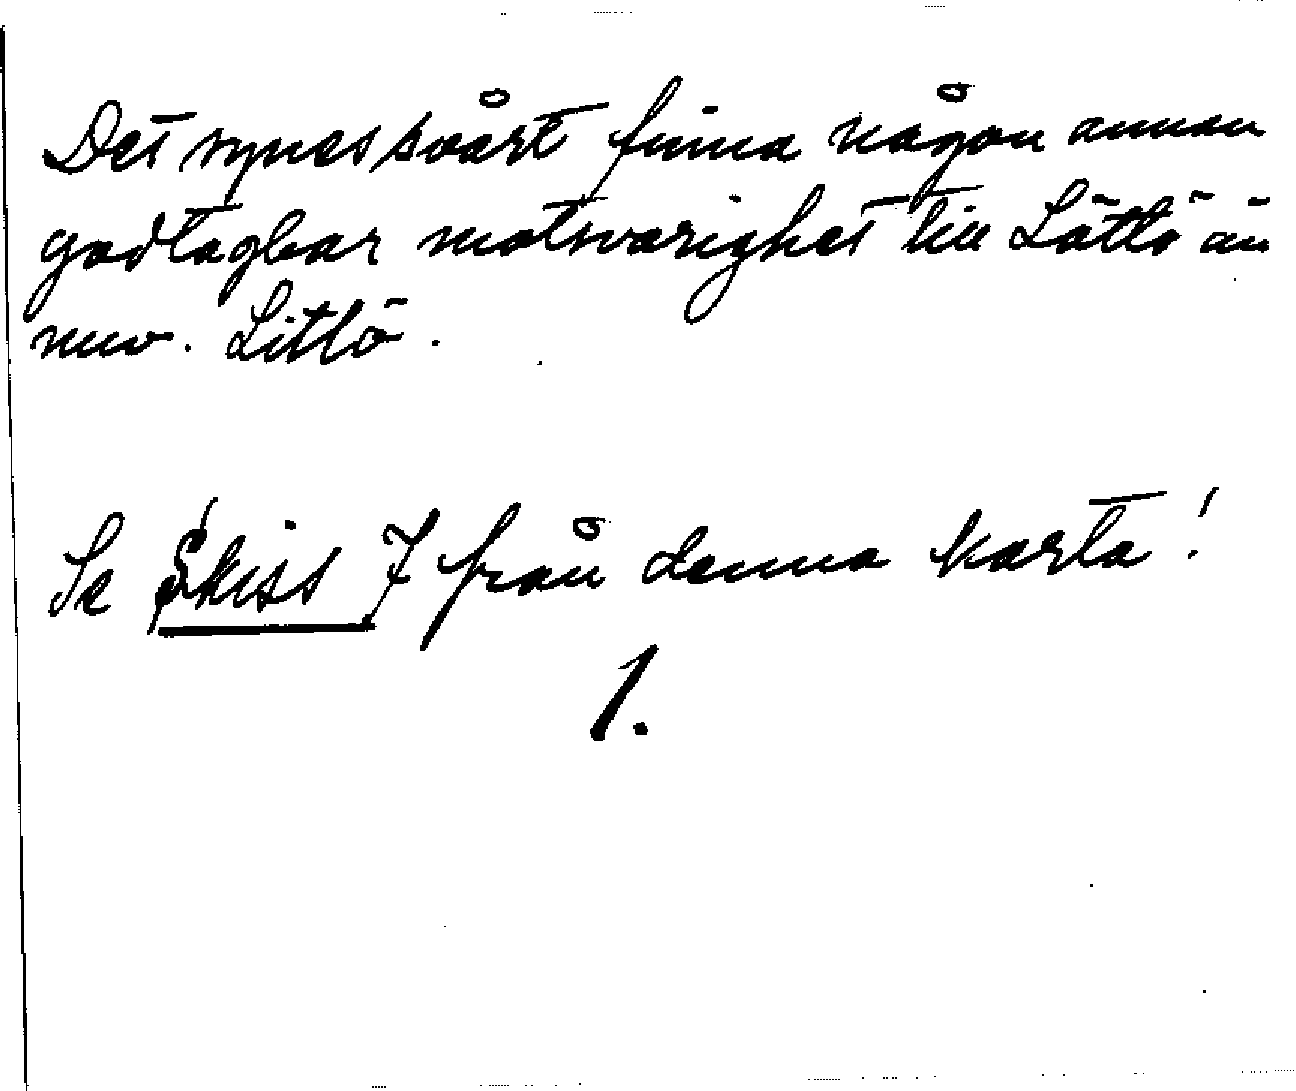 Det synes svårt finna någon annan
godtagbar motsvarighet till Lättö än
nuv. Littö.
Se Skiss 7 från denna karta!
1.